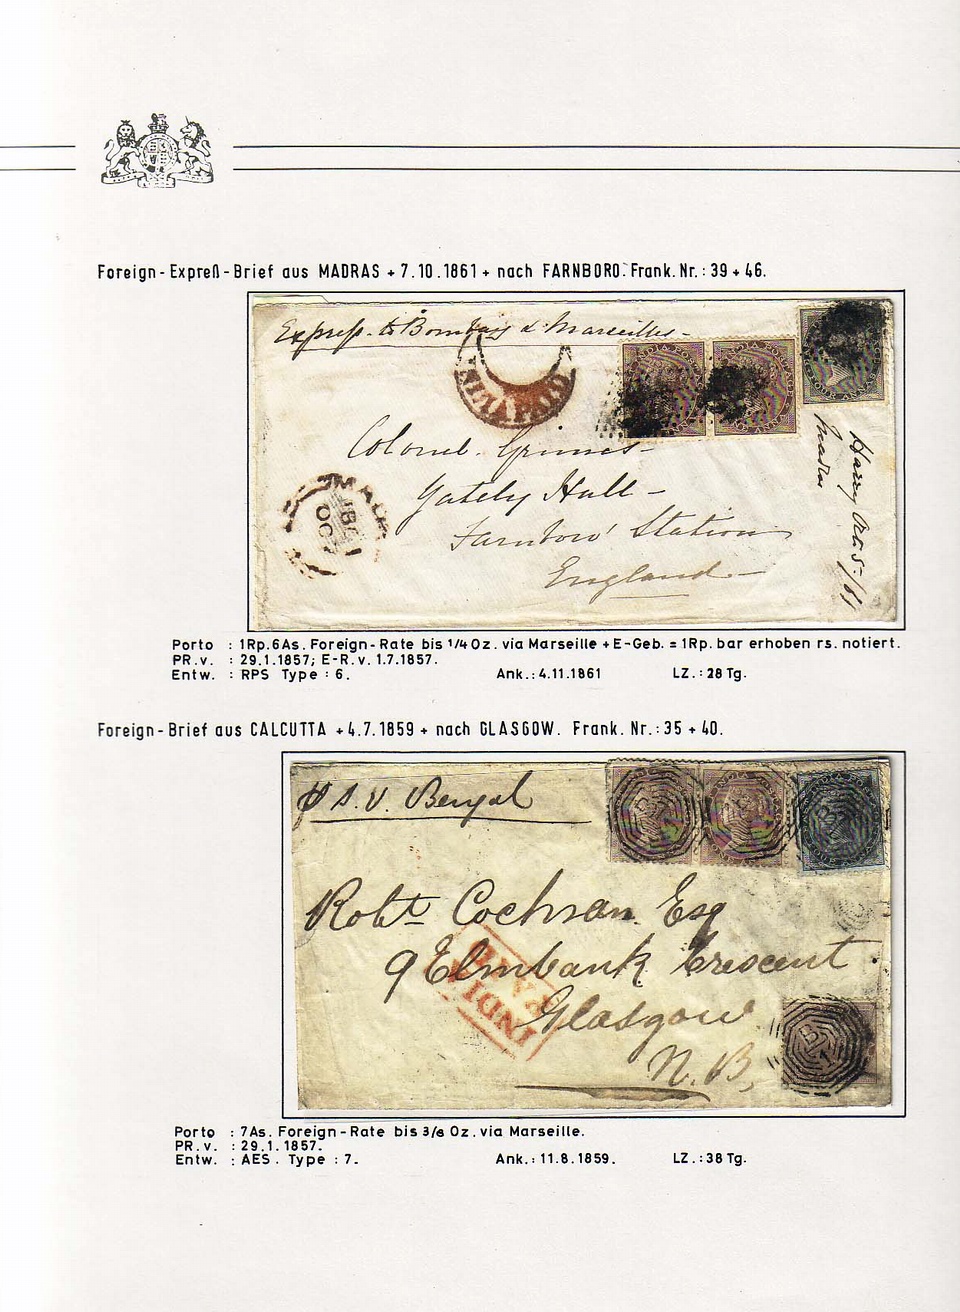 Foreign-Expreß-Brief aus MADRAS + 7.10.1861 + nach FARNBORO. Frank. Nr.: 39 + 46.
Express to Bombay & Marseilles -
INDIA PAID
Colonel Grimes
Gately Hall -
Farnboro' Station
England -
Harry Oct 5/61
Madras
MAD
OC 7
Porto : 1Rp.6As. Foreign-Rate bis 1/4 Oz. via Marseille + E-Geb. = 1Rp. bar erhoben rs. notiert.
PR.v. : 29.1.1857; E-R.v. 1.7.1857.
Entw. : RPS Type : 6. Ank.: 4.11.1861 LZ.: 28 Tg.
Foreign-Brief aus CALCUTTA + 4.7.1859 + nach GLASGOW. Frank. Nr.: 35 + 40.
p S. V. Bengal
Robt Cochran Esq
9 Elmbank Crescent
Glasgow
N. B.
INDIA
PAID
B
1
Porto : 7As. Foreign-Rate bis 3/8 Oz. via Marseille.
PR.v. : 29.1.1857.
Entw. : AES. Type : 7. Ank.: 11.8.1859. LZ.: 38 Tg.